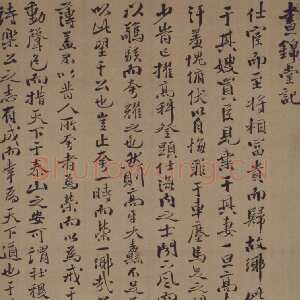 晝錦堂記
仕宦而至將相富貴而歸故鄉
于其嫂買臣見棄于其妻一旦高
汗羞愧俯伏以自悔罪于車塵馬足之
少時已擢高科登顯仕海内之士聞下風而
以驚駭而夸耀之也然則高牙大纛不足
以此望于公也豈止夸一時而榮一鄉哉
薄蓋不以昔人所夸者為榮而以為戒于
動聲色而措天下于泰山之安可謂社稷
詩樂公之志有成而喜為天下道也于